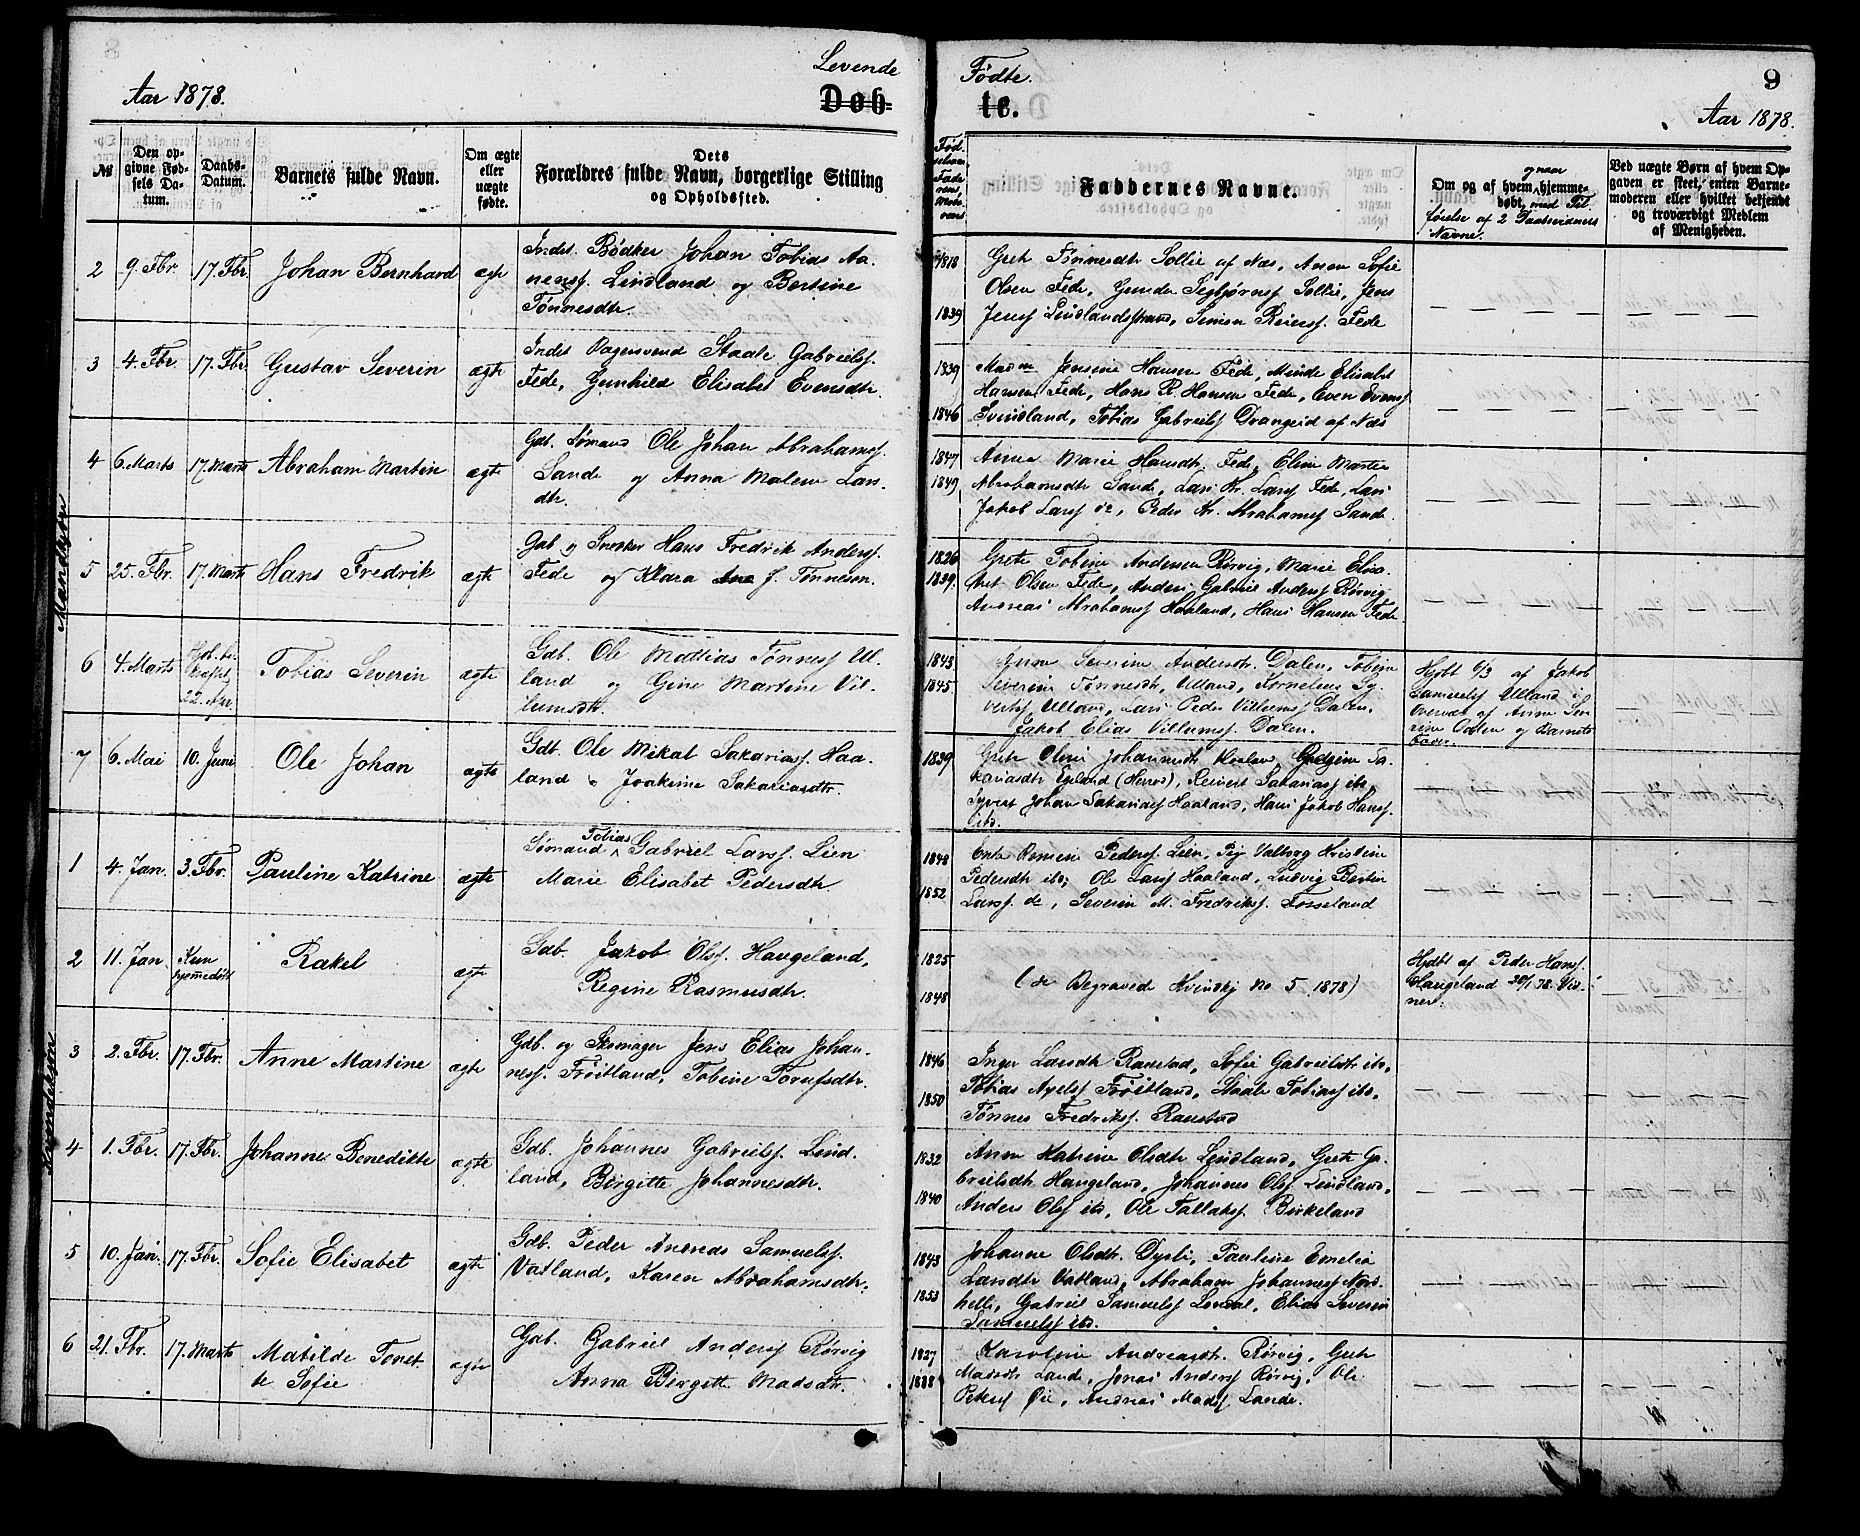 Levende Fødte.
9
Aar 1878. Døb- te. Aar 1878.
№
Den op-
givne Fød-
sels Da-
tum.
Daabs-
Datum.
Barnets fulde Navn.
Om ægte
eller
uægte
fødte.
Dets
Forældres fulde Navn, borgerlige Stilling
og Opholdssted.
Fød-
selsaar
Fade-
rens,
Mode-
rens
Faddernes Navne.
Om og af hvem hjemme-
døbt, med Til-
førelse af 2 Daabsvidners
Navne.
Ved uægte Børn af hvem Op-
gaven er skeet, enten Barne-
moderen eller hvilket bekjendt
og troværdigt Medlem
af Menigheden.
Mandkjøn
2 9. Fbr. 17. Fbr. Johan Bernhard ægte
Inds. Bødker Johan Tobias Aa-
nensf. Lindland og Bertine
Tønnesdtr.
1818
1839
Grete Tønnesdtr Sollie af Næs, Anne Sofie
Olsen Fede, Gunder Segbjørnsf Sollie, Jens
Jensf Lindlandsstrand, Simon Reiersf. Fede
3 4. Fbr. 17. Fbr. Gustav Severin ægte
Inds. Vagensvend Staale Gabrielsf.
Fede, Gunhild Elisabet Evensdtr.
1839
1846
Mad Jensine Hansen Fede, Minde Elisabet
Hansen Fede, Hans R. Hansen Fede, Even Evensf
Svindland, Tobias Gabrielsf Drangeid af Næs
4 6. Marts 17. Marts Abraham Martin ægte
Gdb. Sømand Ole Johan Abrahamsf.
Sande og Anna Malene Lars-
dtr.
1847
1849
Anne Marie Hansdtr. Fede, Eline Martea
Abrahamsdtr Sande, Lars Kr. Larsf Fede, Lars
Jakob Larsf do, Peder Kr. Abrahamsf Sande.
5 25. Fbr. 17. Marts Hans Fredrik ægte
Gdb. og Snedker Hans Fredrik Andersf.
Fede og Klara f. Tønnesen.
1826
1839.
Grete Tobine Andersen Rørvig, Marie Elisa-
bet Olsen Fede, Anders Gabriel Andersf Rørvig
Andreas Abrahamsf Haaland, Hans Hansen Fede.
6 4. Marts 22. Apr. Tobias Severin ægte
Gdb. Ole Mattias Tønnesf Ul-
land og Gine Martine Vil-
lumsdtr.
1843
1845.
Anne Severine Andersdtr. Dalen, Tobine
Severine Tønnesdtr, Ulland, Kornelius Sy-
vertsf Ulland, Lars Peder Villumsf Dalen,
Jakob Elias Villumsf. Dalen.
Hjdbt 6/3 af Jakob
Samuelsf Ulland i
Overvær af Anne Se-
rine Dalen og Barnets
Fader.
7 6. Mai 10. Juni Ole Johan ægte
Gdb. Ole Mikal Sakariasf. Haa-
land & Joakime Sakariasdtr.
1839
Grete Oline Johannesdtr Haaland, Sa-
kariasdtr Egeland, Reinert Sakariasf ibd,
Syvert Johan Sakariasf Haaland, Hans Jakob Hansf.
ibd.
Kvindekjøn
1 4. Jan. 3. Fbr. Pauline Katrine ægte
Sømand Tobias Gabriel Larsf. Lien
Marie Elisabet Pedersdtr
1848
1852
Enke Pedersf. Lien, Pige Valborg Kristine
Pedersdtr ibd, Ole Larsf Haaland, Ludvig Berten
Larsf. do, Severin M. Fredriksf. Fosseland
2 11. Jan. Kun
hjemmedøbt Rakel ægte
Gdb. Jakob Olsf. Haugeland,
Regine Rasmusdtr.
1825
1848
(se Begravede Kvindkj No 5 1878)
Hjdbt af Peder Hansf.
Haugeland 20/1 78. Vid-
ner:
3 2. Fbr. 17. Fbr. Anne Martine ægte
Gdb. og Skomager Jens Elias Johan-
nesf. Frøitland, Tobine Torufsdtr.
1846
1850
Inger Larsdtr Raustad, Sofie Gabrielsdtr ibd,
Tobias Axelsf Frøitland, Staale Tobiasf ibd,
Tønnes Fredriksf. Raustad
4 1. Fbr. 17. Fbr. Johanne Benedikte ægte.
Gdb. Johannes Gabrielsf. Lind-
land, Birgitte Johannesdtr.
1832
1840
Anne Katrine Olsdtr Lindland, Grete Ga-
brielsdtr Haugeland, Johannes Olsf. Lindland,
Anders Olsf ibd, Ole Tallaksf. Birkeland
5 10. Jan. 17. Fbr. Sofie Elisabet ægte
Gdb. Peder Andreas Samuelsf.
Vatland, Karen Abrahamsdtr.
1843
1853
Johanne Olsdtr. Dysli, Pauline Emelia
Larsdtr Vatland, Abraham Johannesf Nord-
helle, Gabriel Samuelsf Londal, Elias Severin
Samuelsf ibd.
6 21. Fbr. 17. Marts Matilde Tonet-
te Sofie ægte
Gdb. Gabriel Andersf Rørvig
Anna Birgitte Madsdtr.
1827
1838
Karoline Andreasdtr. Rørvig, Grete
Madsdtr Lande, Jonas Andersf Rørvig, Ole
Pedersf Øie, Andreas Madsf Lande.